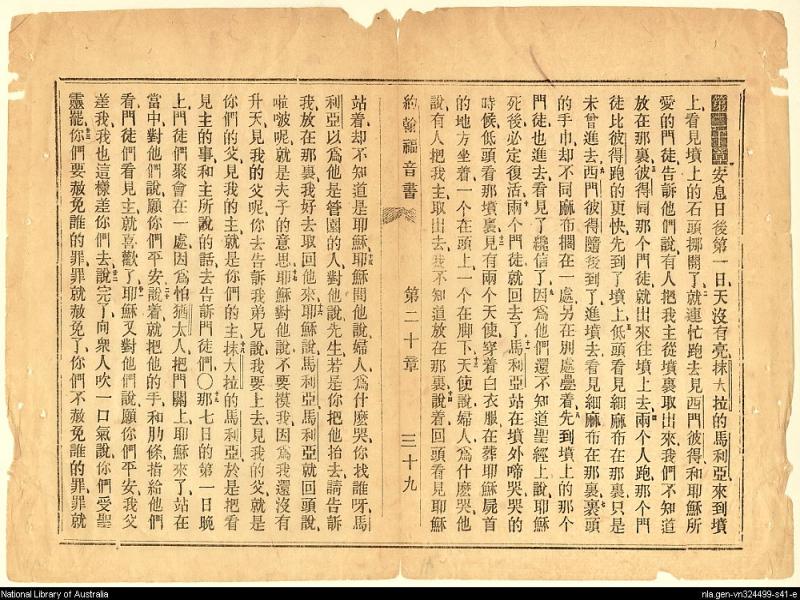 第二十章安息日後第一日、天沒有亮、抹大拉的馬利亞來到墳
上、看見墳上的石頭挪開了、就連忙跑去見西門彼得、和耶穌所
愛的門徒、告訴他們說、有人把我主從墳裏取出來、我們不知道
放在那裏、彼得同那個門徒就出來、往墳上去、兩個人跑、那個門
徒比彼得跑的更快、先到了墳上、低頭看見細麻布在那裏、只是
未曾進去、西門彼得隨後到了、進墳去看見細麻布在那裏、裹頭
的手巾却不同麻布擱在一處、另在別處疊着、先到墳上的那個
門徒也進去、看見了、纔信了、因爲他們還不知道聖經上說、耶穌
死後必定復活、兩個門徒就回去了、馬利亞站在墳外啼哭、哭的
時候低頭看那墳裏、見有兩個天使、穿着白衣服、在葬耶穌屍首
的地方坐着、一個在頭上、一個在脚下、天使說、婦人爲什麽哭、他
說、有人把我主取出去、我不知道放在那裏、說着回頭看見耶穌
約翰福音書 第二十章 三十九
站着、却不知道是耶穌、耶穌問他說、婦人、爲什麽哭、你找誰呀、馬
利亞以爲他是管園的人、對他說、先生、若是你把他抬去、請告訴
我、放在那裏、我好去取回他來、耶穌說、馬利亞、馬利亞就回頭說、
啦啵呢、就是夫子的意思、耶穌對他說、不要摸我、因爲我還沒有
升天見我的父呢、你去告訴我弟兄說、我要上去見我的父、就是
你們的父、見我的主、就是你們的主、抹大拉的馬利亞、於是把看
見主的事、和主所說的話、去告訴門徒們〇那七日的第一日晚
上、門徒們聚會在一處、因爲怕猶太人、把門關上、耶穌來了、站在
當中、對他們說、願你們平安、說着就把他的手、和肋條指給他們
看、門徒們看見主、就喜歡了、耶穌又對他們說、願你們平安、我父
差我、我也這樣差你們去、說完了、向衆人吹一口氣、說、你們受聖
靈罷、你們要赦免誰的罪、罪就赦免了、你們不赦免誰的罪、罪就
National Library of Australia
nla.gen-vn324499-s41-e